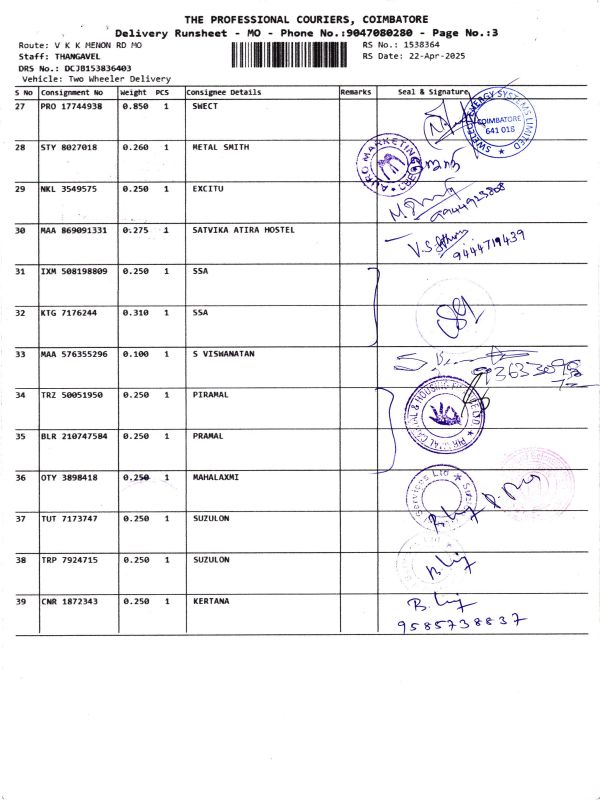 THE PROFESSIONAL COURIERS, COIMBATORE
Delivery Runsheet - MO - Phone No.:9047080280 - Page No.:3
Route: V K K MENON RD MO RS No.: 1538364
Staff: THANGAVEL RS Date: 22-Apr-2025
DRS No.: DCJB153836403
Vehicle: Two Wheeler Delivery
S No Consignment No Weight PCS Consignee Details Remarks Seal & Signature
27 PRO 17744938 0.850 1 SWECT
COIMBATORE
641 018
28 STY 8027018 0.260 1 METAL SMITH
29 NKL 3549575 0.250 1 EXCITU
9944923808
30 MAA 869091331 0.275 1 SATVIKA ATIRA HOSTEL
9444719439
31 IXM 508198809 0.250 1 SSA
32 KTG 7176244 0.310 1 SSA
33 MAA 576355296 0.100 1 S VISWANATAN
34 TRZ 50051950 0.250 1 PIRAMAL
35 BLR 210747584 0.250 1 PRAMAL
36 OTY 3898418 0.250 1 MAHALAXMI
37 TUT 7173747 0.250 1 SUZULON
38 TRP 7924715 0.250 1 SUZULON
39 CNR 1872343 0.250 1 KERTANA
9585738837